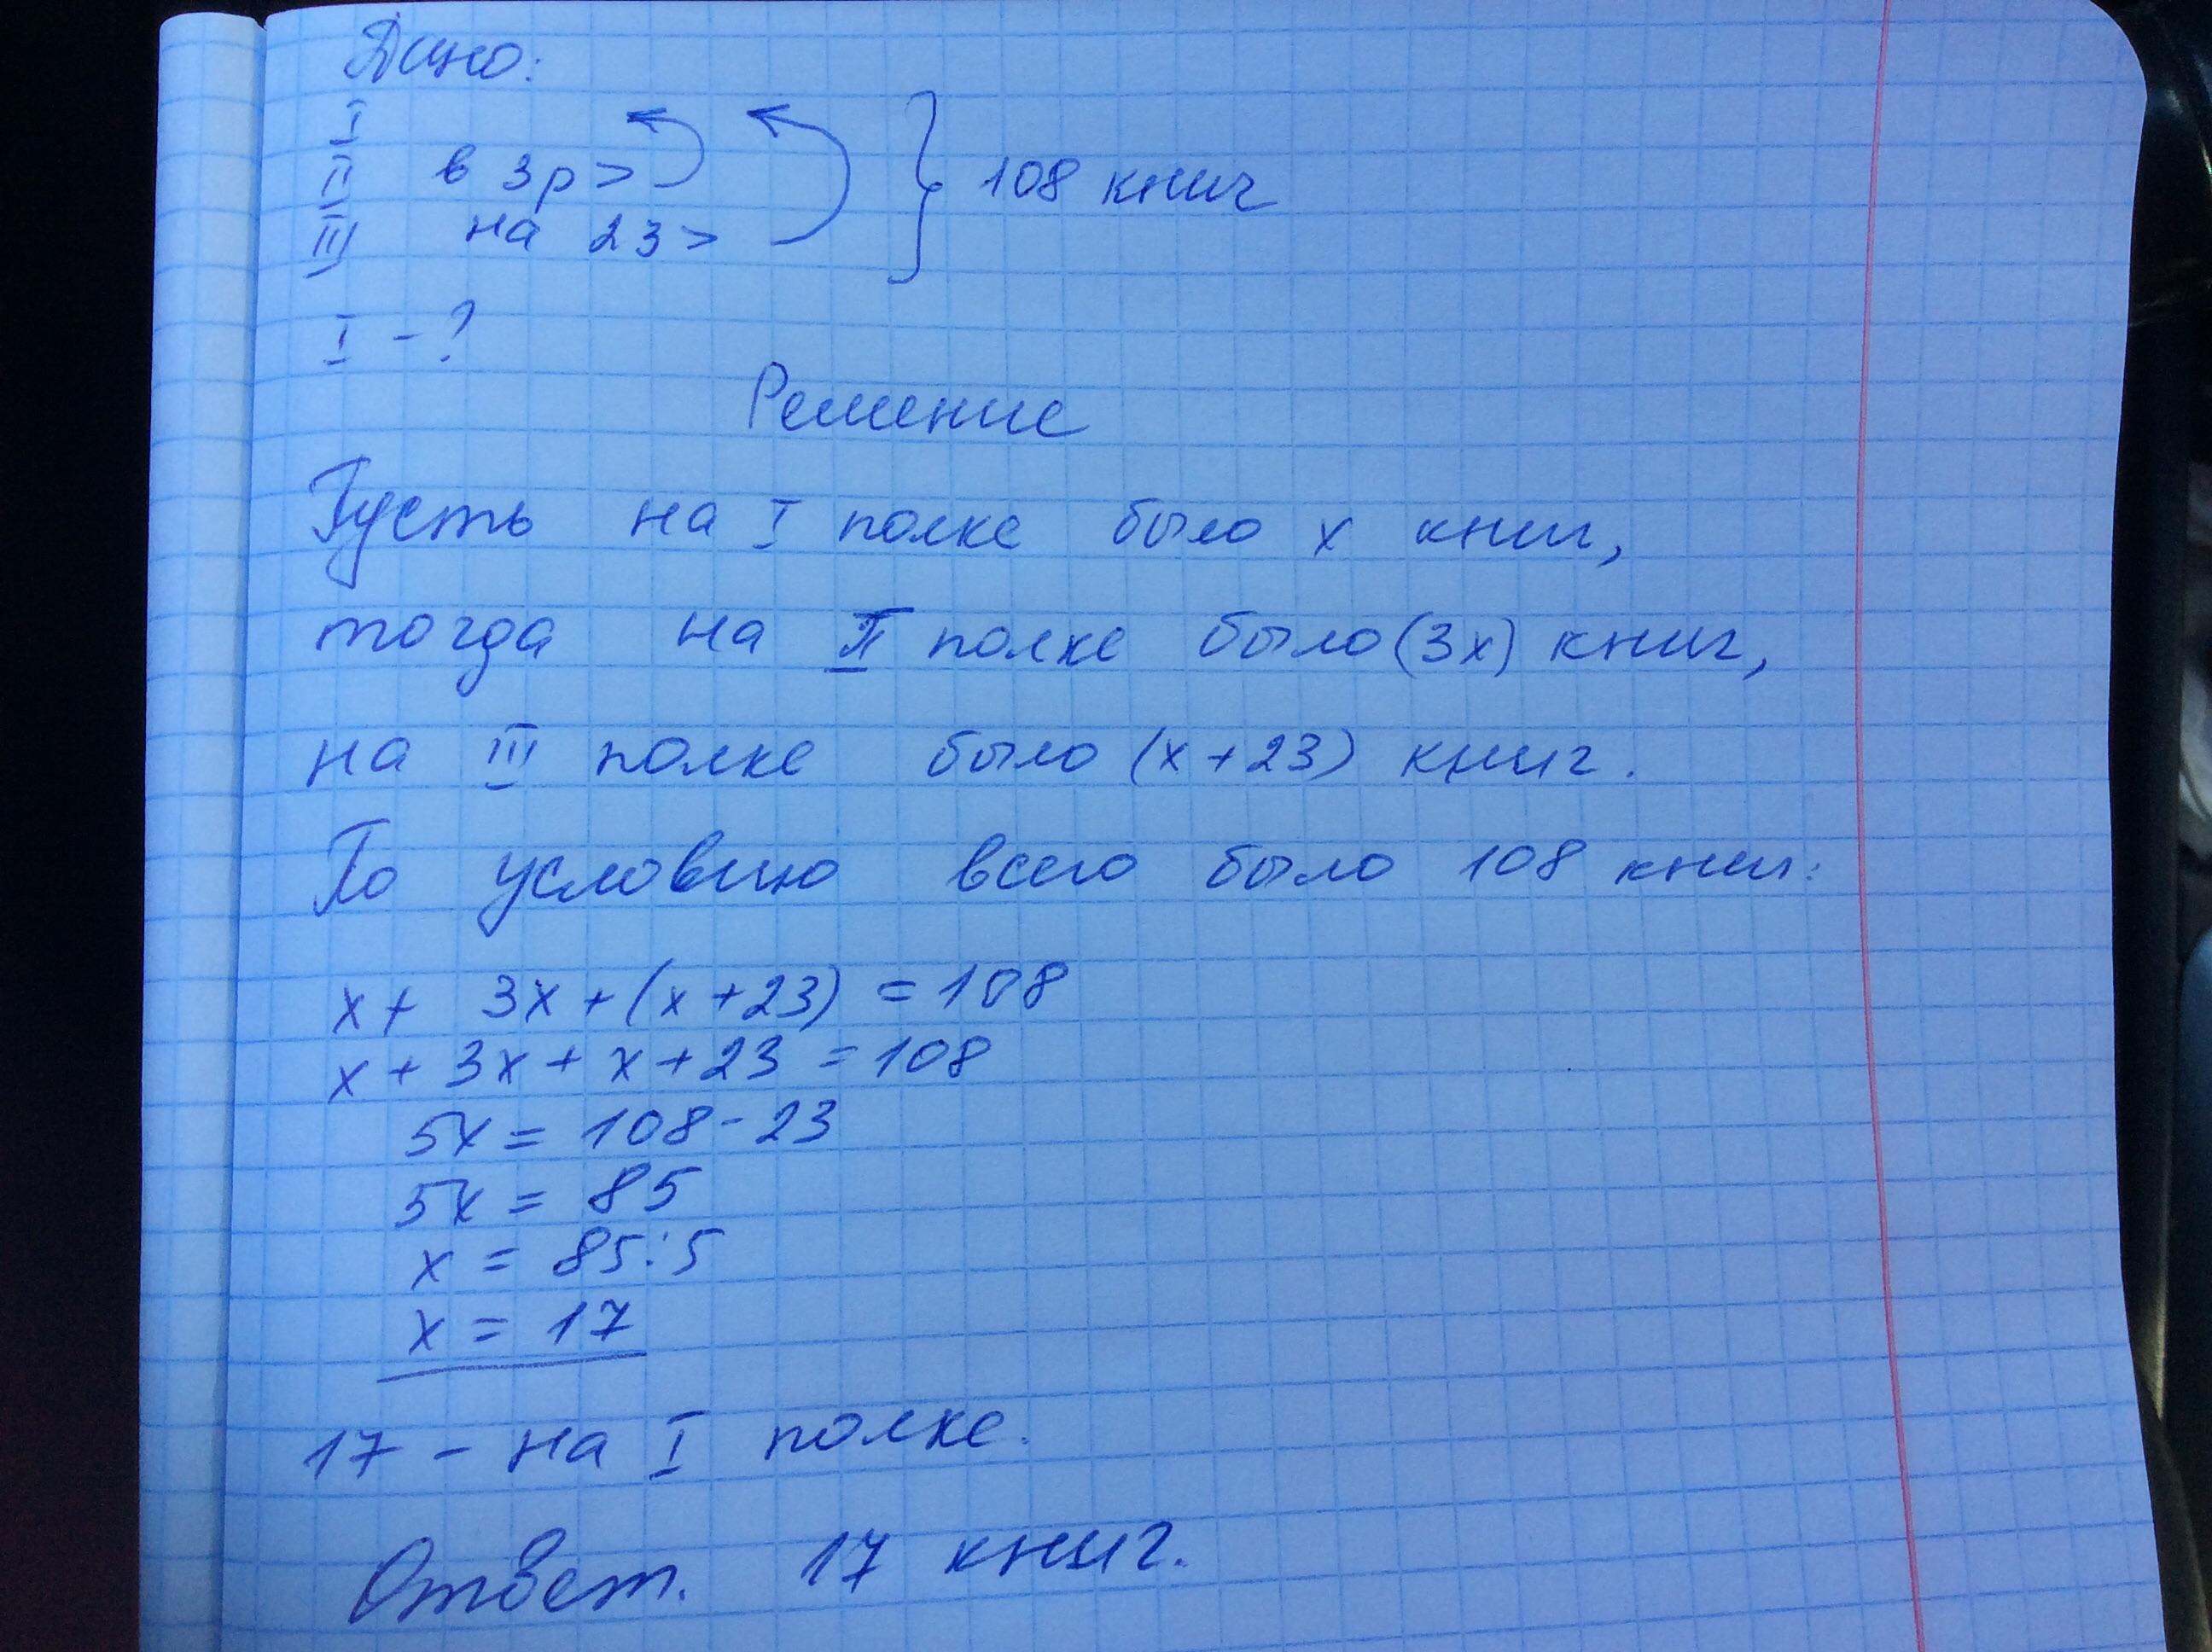 Дано:
I
II в 3р >
III на 23 >
108 книг
I - ?
Решение
Пусть на I полке было x книг,
тогда на II полке было (3x) книг,
на III полке было (x + 23) книг.
По условию всего было 108 книг:
x + 3x + (x + 23) = 108
x + 3x + x + 23 = 108
5x = 108 - 23
5x = 85
x = 85 : 5
x = 17
17 - на I полке.
Ответ. 17 книг.